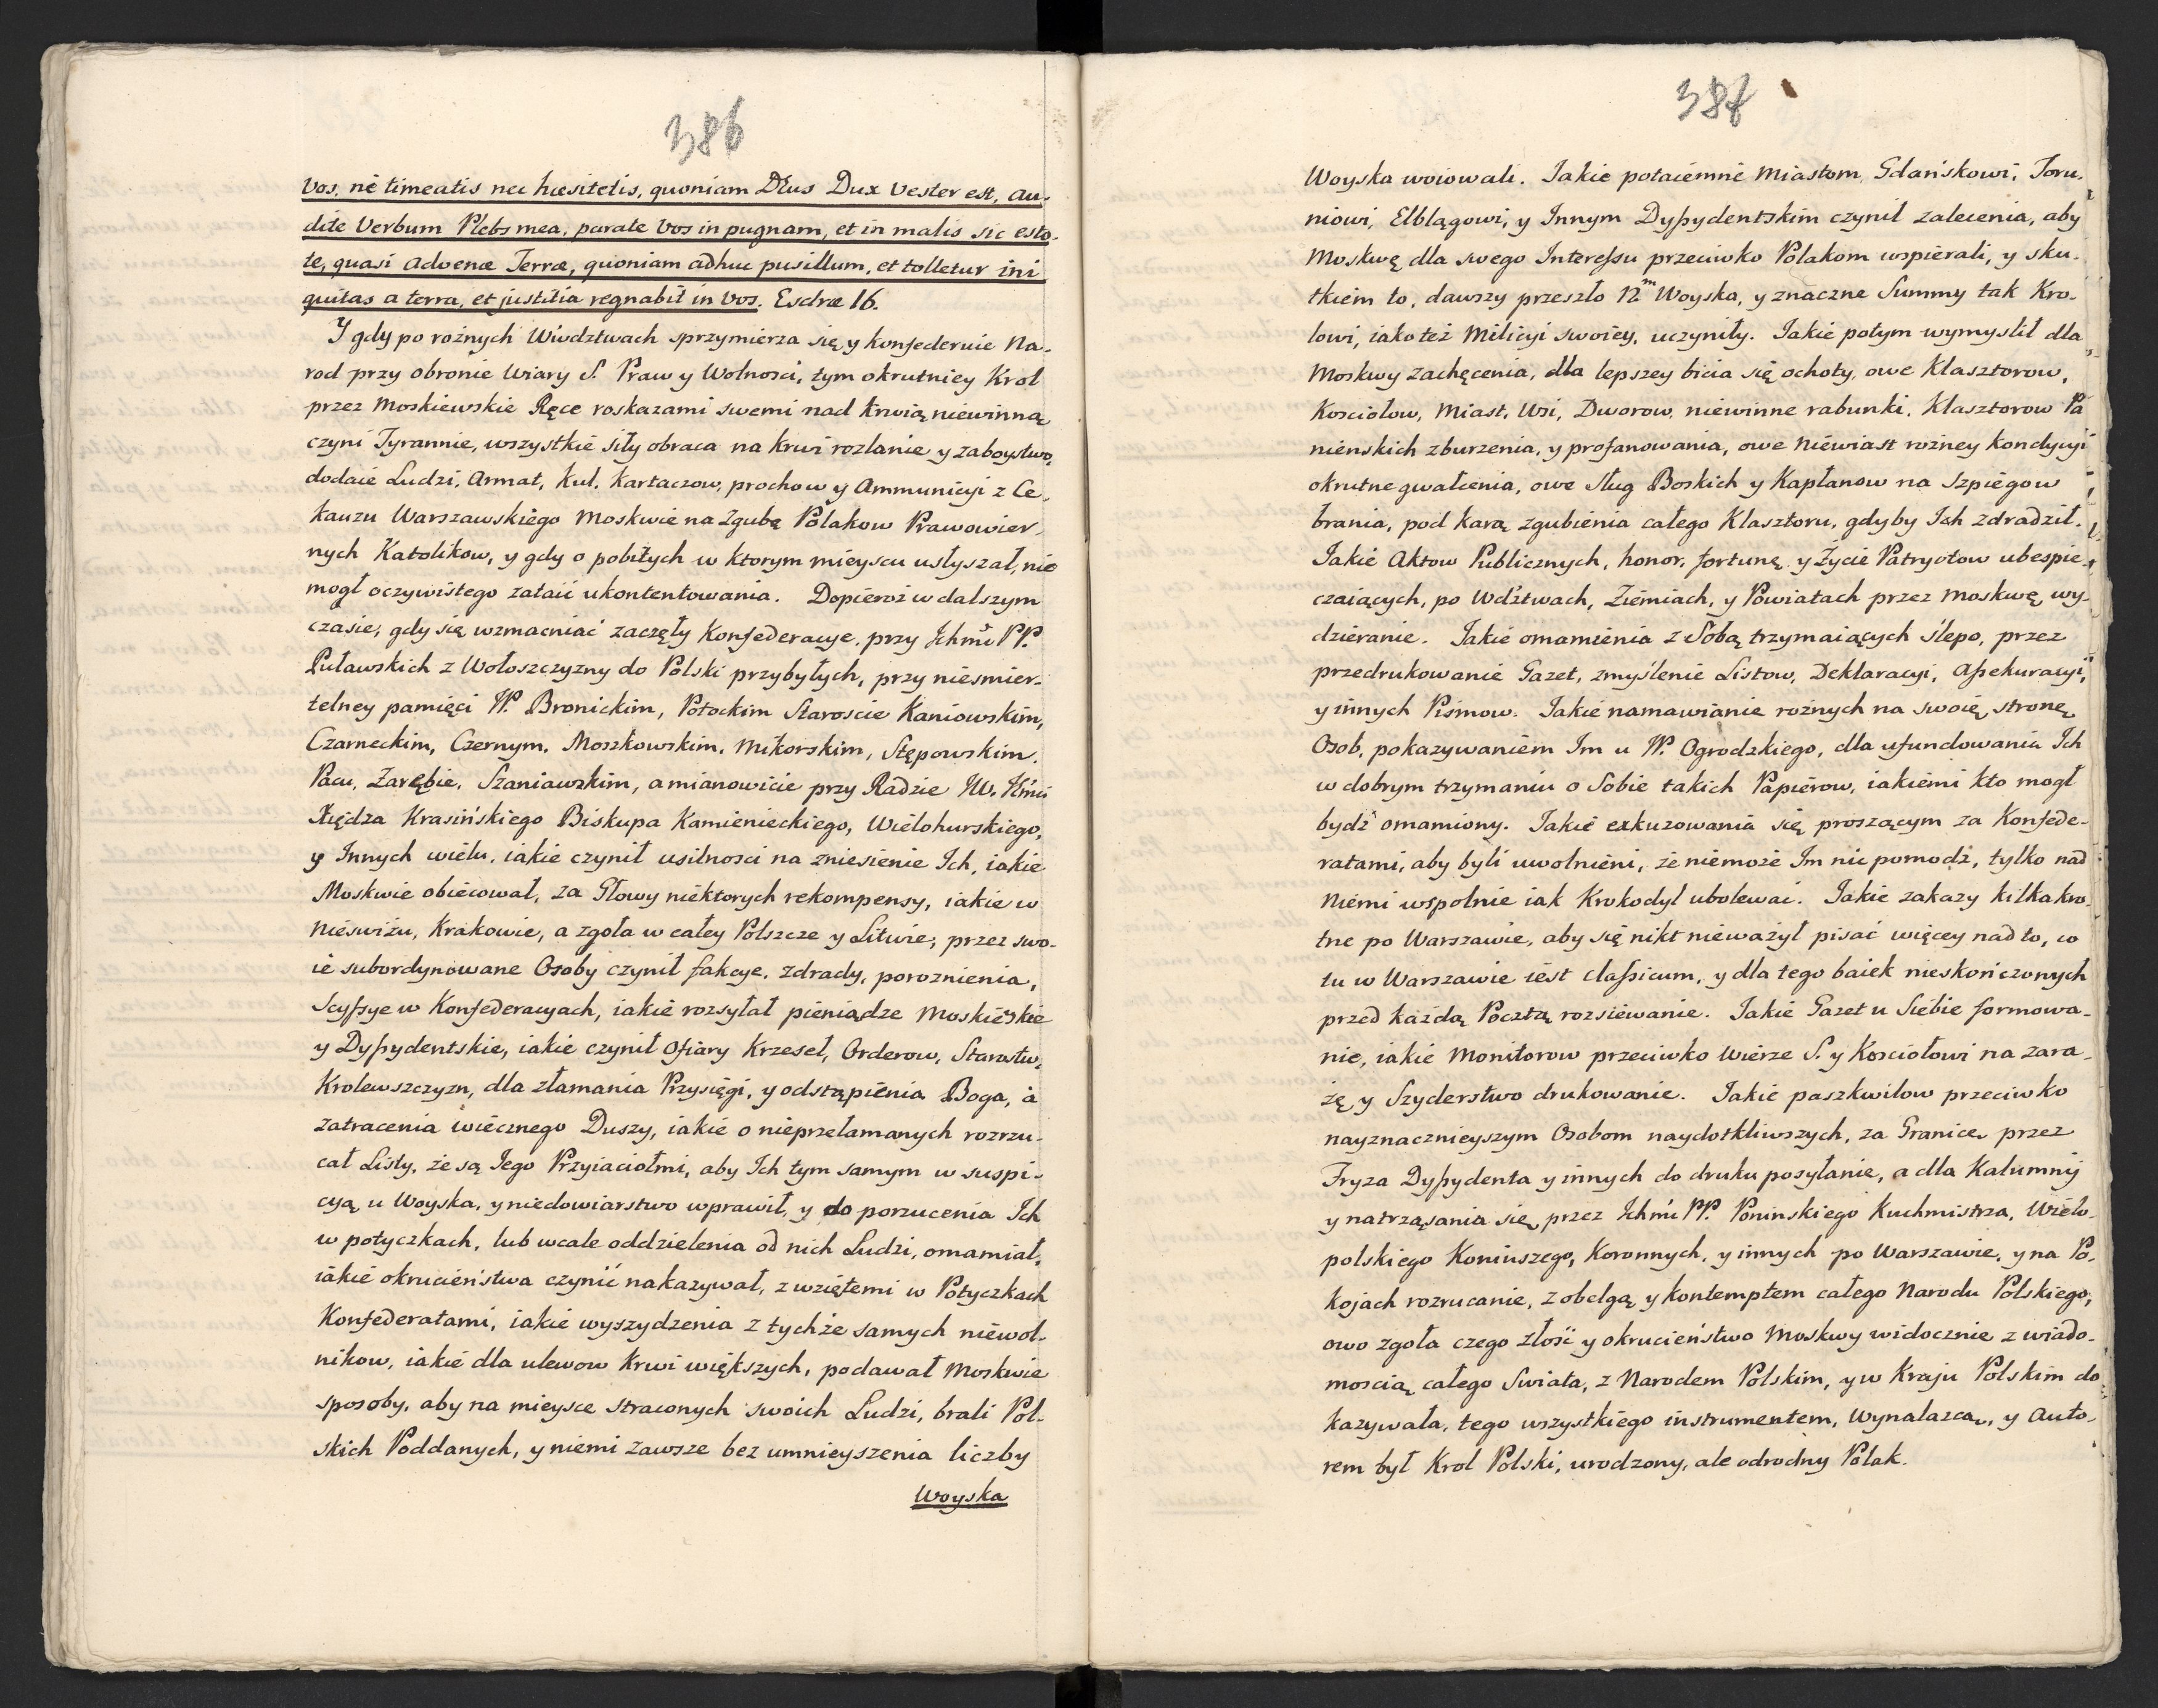 386
Vos, nè timeatis nec hæsitetis, quoniam DEus Dux Vester est, au-
dite Verbum Plebs mea, parate Vos in pugnam, et in malis sic esto-
te, quasi advenæ Terræ, quoniam adhuc pusillum, et tolletur ini
quitas a terra, et justitia regnabit in Vos. Esdræ 16.
Y gdy po rożnych Wwdztwach sprzymierza się y konfederuie Na-
rod przy obronie Wiary S. Praw y Wolnosci, tym okrutniey Krol
przez Moskiewskie Ręce roskazami swemi nad krwią niewinną
czyni Tyrannie, wszystkie siły obraca na krwi rozlanie y zaboystwo,
dodaie Ludzi, Armat, kul, kartaczow, prochow y Ammunicyi z Ce-
kauzu Warszawskiego Moskwie na zgubę Polakow Prawowier-
nych Katolikow, y gdy o pobitych w ktorym mieyscu usłyszał, nie
mogł oczywistego zataić ukontentowania. Dopieroż w dalszym
czasie, gdy się wzmacniać zaczęły Konfederacye, przy Ichmć PP.
Puławskich z Wołoszczyzny do Polski przybyłych, przy niesmier-
telney pamięci W. Bronickim, Potockim Staroscie Kaniowskim,
Czarneckim, Czernym, Moszkowskim, Mikorskim, Stępowskim,
Pacu, Zarębie, Szaniawskim, a mianowicie przy Radzie JW. Jmci
Xiędza Krasińskiego Biskupa Kamienieckiego, Wielohurskiego,
y Innych wielu, iakie czynił usilnosci na zniesienie Ich, iakie
Moskwie obiecował, za Głowy niektorych rekompensy, iakie w
Nieswiżu, Krakowie, a zgoła w całey Polszcze y Litwie, przez swo-
ie subordynowane Osoby czynił fakcye, zdrady, poroznienia,
Scyssye w Konfederacyach, iakie rozsyłał pieniądze Moskieskie
y Dyssydentskie, iakie czynił Ofiary Krzeseł, Orderow, Starostw,
Krolewszczyzn, dla złamania Przysięgi, y odstąpienia Boga, à
zatracenia wiecznego Duszy, iakie o nieprzełamanych rozrzu-
cał Listy, że są Jego Przyiaciołmi, aby Ich tym samym w suspi-
cyą u Woyska, y niedowiarstwo wprawił, y do porzucenia Ich
w potyczkach, lub wcale oddzielenia od nich Ludzi, omamiał,
iakie okrucieństwa czynić nakazywał, z wziętemi w Potyczkach
Konfederatami, iakie wyszydzenia z tychże samych niewol-
nikow, iakie dla ulewow krwi większych, podawał Moskwie
sposoby, aby na mieysce straconych swoich Ludzi, brali Pol-
skich Poddanych, y niemi zawsze bez umnieyszenia liczby
Woyska
387
Woyska woiowali. Jakie potaiemne Miastom, Gdańskowi, Toru-
niowi, Elblągowi, y Innym Dyssydentskim czynił zalecenia, aby
Moskwę dla swego Interessu przeciwko Polakom wspierali, y sku-
tkiem to, dawszy przeszło 12m Woyska, y znaczne Summy tak Kro-
lowi, iako też Milicyi swoiey, uczyniły. Jakie potym wymyslił dla
Moskwy zachęcenia, dla lepszey bicia się ochoty, owe Klasztorow,
Kosciołow, Miast, Wsi, Dworow, niewinne rabunki, Klasztorow Pa
nienskich zburzenia, y profanowania, owe Niewiast rożney kondycyi
okrutne gwałcenia, owe Sług Boskich y Kapłanow na Szpiegow
brania, pod karą zgubienia całego Klasztoru, gdyby Ich zdradził.
Jakie Aktow Publicznych, honor, fortunę, y Życie Patryotow ubespie-
czaiących, po Wdztwach, Ziemiach, y Powiatach przez Moskwę wy-
dzieranie. Jakie omamienia z Sobą trzymaiących slepo, przez
przedrukowanie Gazet, zmyslenie Listow, Deklaracyi, Assekuracyi,
y innych Pismow. Jakie namawianie rożnych na swoię stronę
Osob, pokazywaniem Im u W. Ogrodzkiego, dla ufundowania Ich
w dobrym trzymaniu o Sobie takich Papierow, iakiemi kto mogł
bydź omamiony. Jakie exkuzowania się proszącym za Konfede-
ratami, aby byli uwolnieni, że niemoże Im nic pomodz, tylko nad
Niemi wspolnie iak Krokodyl ubolewać. Jakie zakazy kilkakro-
tne po Warszawie, aby się nikt nieważył pisać więcey nad to, co
tu w Warszawie iest classicum, y dla tego baiek nieskończonych
przed każdą Pocztą rozsiewanie. Jakie Gazet u Siebie formowa-
nie, iakie Monitorow przeciwko Wierze S. y Kosciołowi na zara-
żę y Szyderstwo drukowanie. Jakie paszkwilow przeciwko
nayznacznieyszym Osobom naydotkliwszych, za Granice przez
Fryza Dyssydenta y innych do druku posyłanie, a dla Kalumnij
y natrząsania się przez Ichmć PP. Poninskiego Kuchmistrza, Wielo-
polskiego Koniuszego, Koronnych, y innych po Warszawie, y na Po-
kojach rozrucanie, z obelgą y kontemptem całego Narodu Polskiego,
owo zgoła czego złość y okrucieństwo Moskwy widocznie z wiado-
moscią całego Swiata, z Narodem Polskim, y w Kraju Polskim do
kazywała, tego wszystkiego instrumentem, Wynalazcą, y Auto-
rem był Krol Polski, urodzony, ale odrodny Polak.